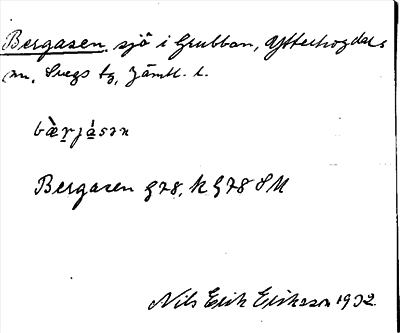 Bergasen, sjö i Grubban, Ytterhogdals
sn, Svegs tg, Jämtl. l.
bæ̀rjásən
Bergasen g78, K g78 SM
Nils Erik Eriksson 1932